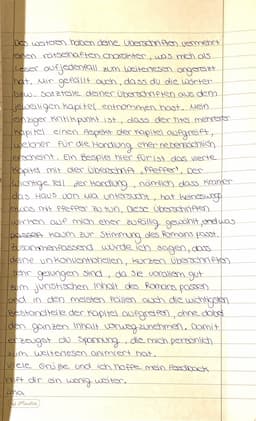 Des weiteren haben deine Überschriften vermehrt
einen rätselhaften Charakter, was mich als
Leser auf jedenfall zum Weiterlesen angereizt
hat. Mir gefällt auch, dass du die Wörter
bzw. Satzteile deiner Überschriften aus dem
jeweiligen Kapitel entnommen hast. Mein
einziger Kritikpunkt ist, dass der Titel mancher
Kapitel einen Aspekt der Kapitel aufgreift,
welcher für die Handlung eher nebensächlich
erscheint. Ein Beispiel hier für ist das vierte
Kapitel mit der Überschrift „Pfeffer". Der
wichtige Teil der Handlung, nämlich dass Kramer
das Haus von untersucht, hat keineswegs
etwas mit Pfeffer zu tun. Diese Überschriften
wirken auf mich eher zufällig gewählt und was
kaum zur Stimmung des Romans passt.
Zusammenfassend würde ich sagen, dass
deine unkonventionellen, kurzen Überschriften
sehr gelungen sind, da sie vorallem gut
zum juristischen Inhalt des Romans passen
und in den meisten Fällen auch die wichtigsten
Bestandteile der Kapitel aufgreifen, ohne dabei
den ganzen Inhalt vorwegzunehmen. Damit
erzeugst du Spannung, die mich persönlich
zum Weiterlesen animiert hat.
Viele Grüße und ich hoffe mein Feedback
hilft dir ein wenig weiter.